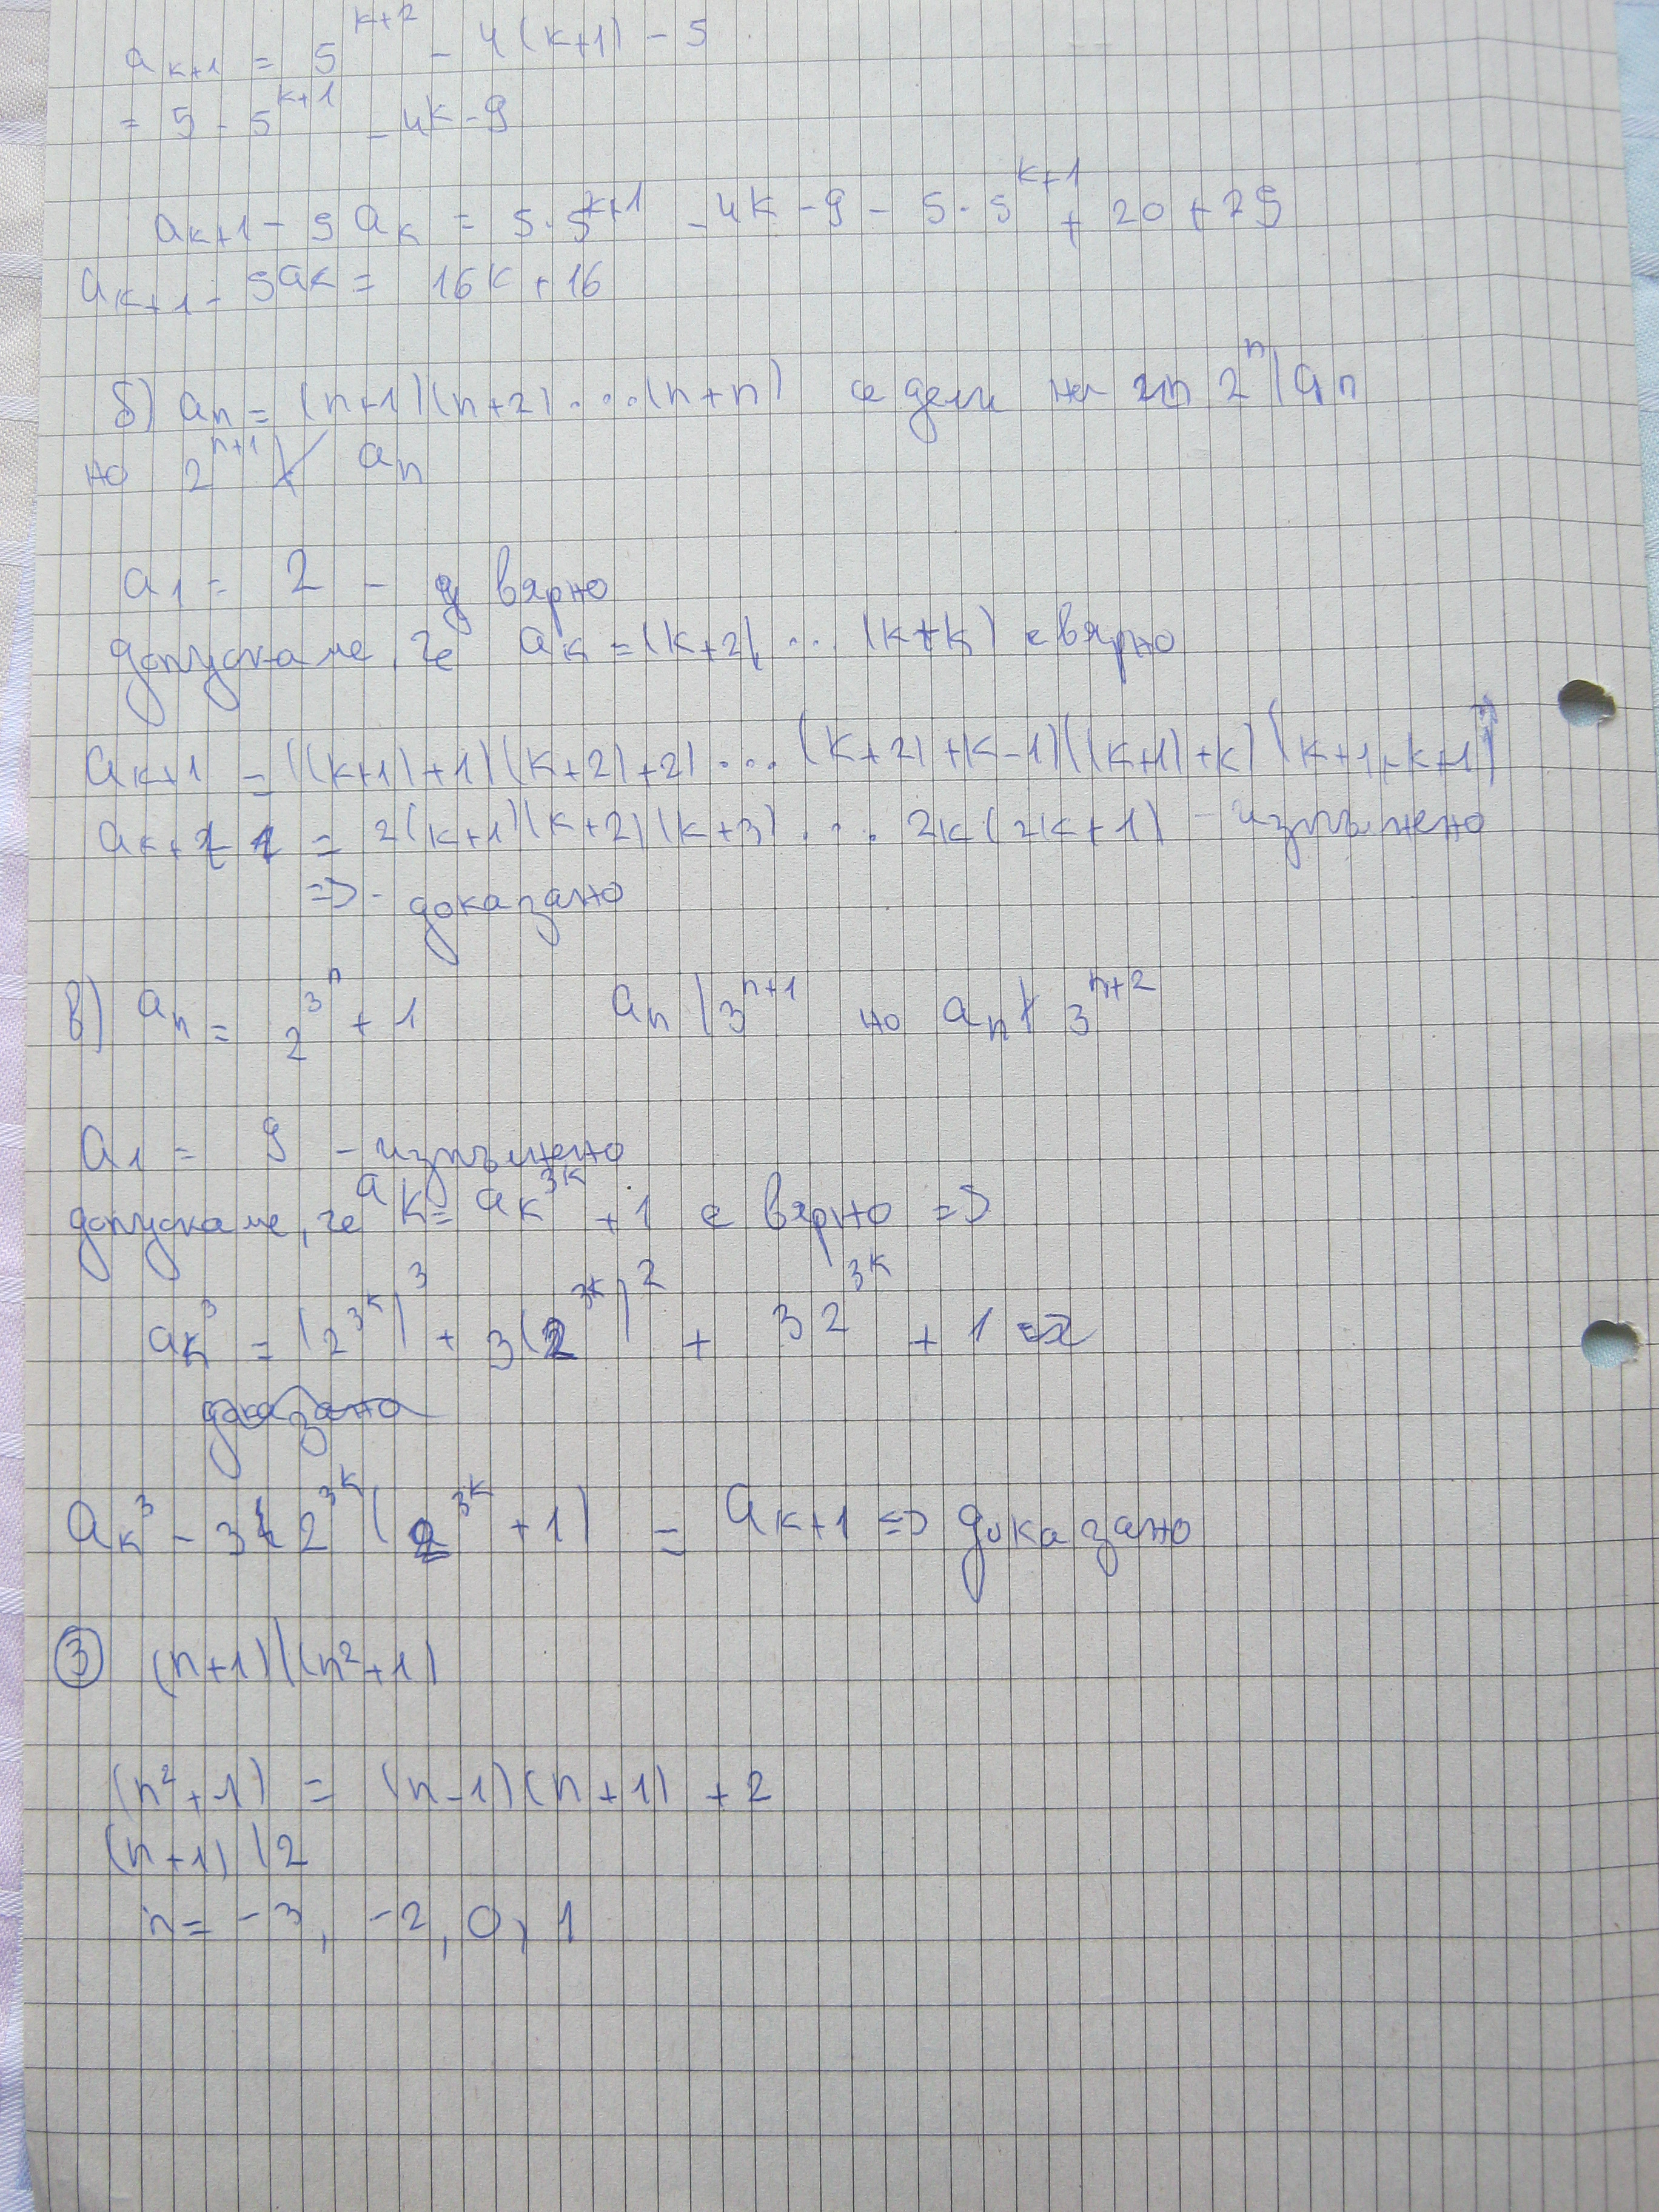 a_{k+1} = 5^{k+2} - 4(k+1) - 5
= 5 · 5^{k+1} - 4k - 9
a_{k+1} - 5a_k = 5·5^{k+1} - 4k - 9 - 5·5^{k+1} + 20 + 25
a_{k+1} - 5a_k = 16k + 16
б) a_n = (n+1)(n+2)....(n+n) се дели на 2^n | a_n
но 2^{n+1} ∤ a_n
a_1 = 2 - вярно
допускаме, че a_k = (k+2)...(k+k) е вярно
a_{k+1} = ((k+1)+1)(k+2)+2)...(k+2)+k-1)((k+1)+k)(k+1+k+1)
a_{k+1} = 2(k+1)(k+2)(k+3)....2k(2k+1) - изпълнено
=> - доказано
в) a_n = 2^{3^n} + 1 a_n | 3^{n+1} но a_n ∤ 3^{n+2}
a_1 = 9 - изпълнено
допускаме, че a_k = a_k^{3^k} + 1 е вярно =>
a_k^3 = (2^{3^k})^3 + 3(2^{3^k})^2 + 3 2^{3^k} + 1
доказано
a_k^3 - 3 2^{3^k}(2^{3^k} + 1) = a_{k+1} => доказано
③ (n+1)|(n²+1)
(n²+1) = (n-1)(n+1) + 2
(n+1) | 2
n = -3, -2, 0, 1